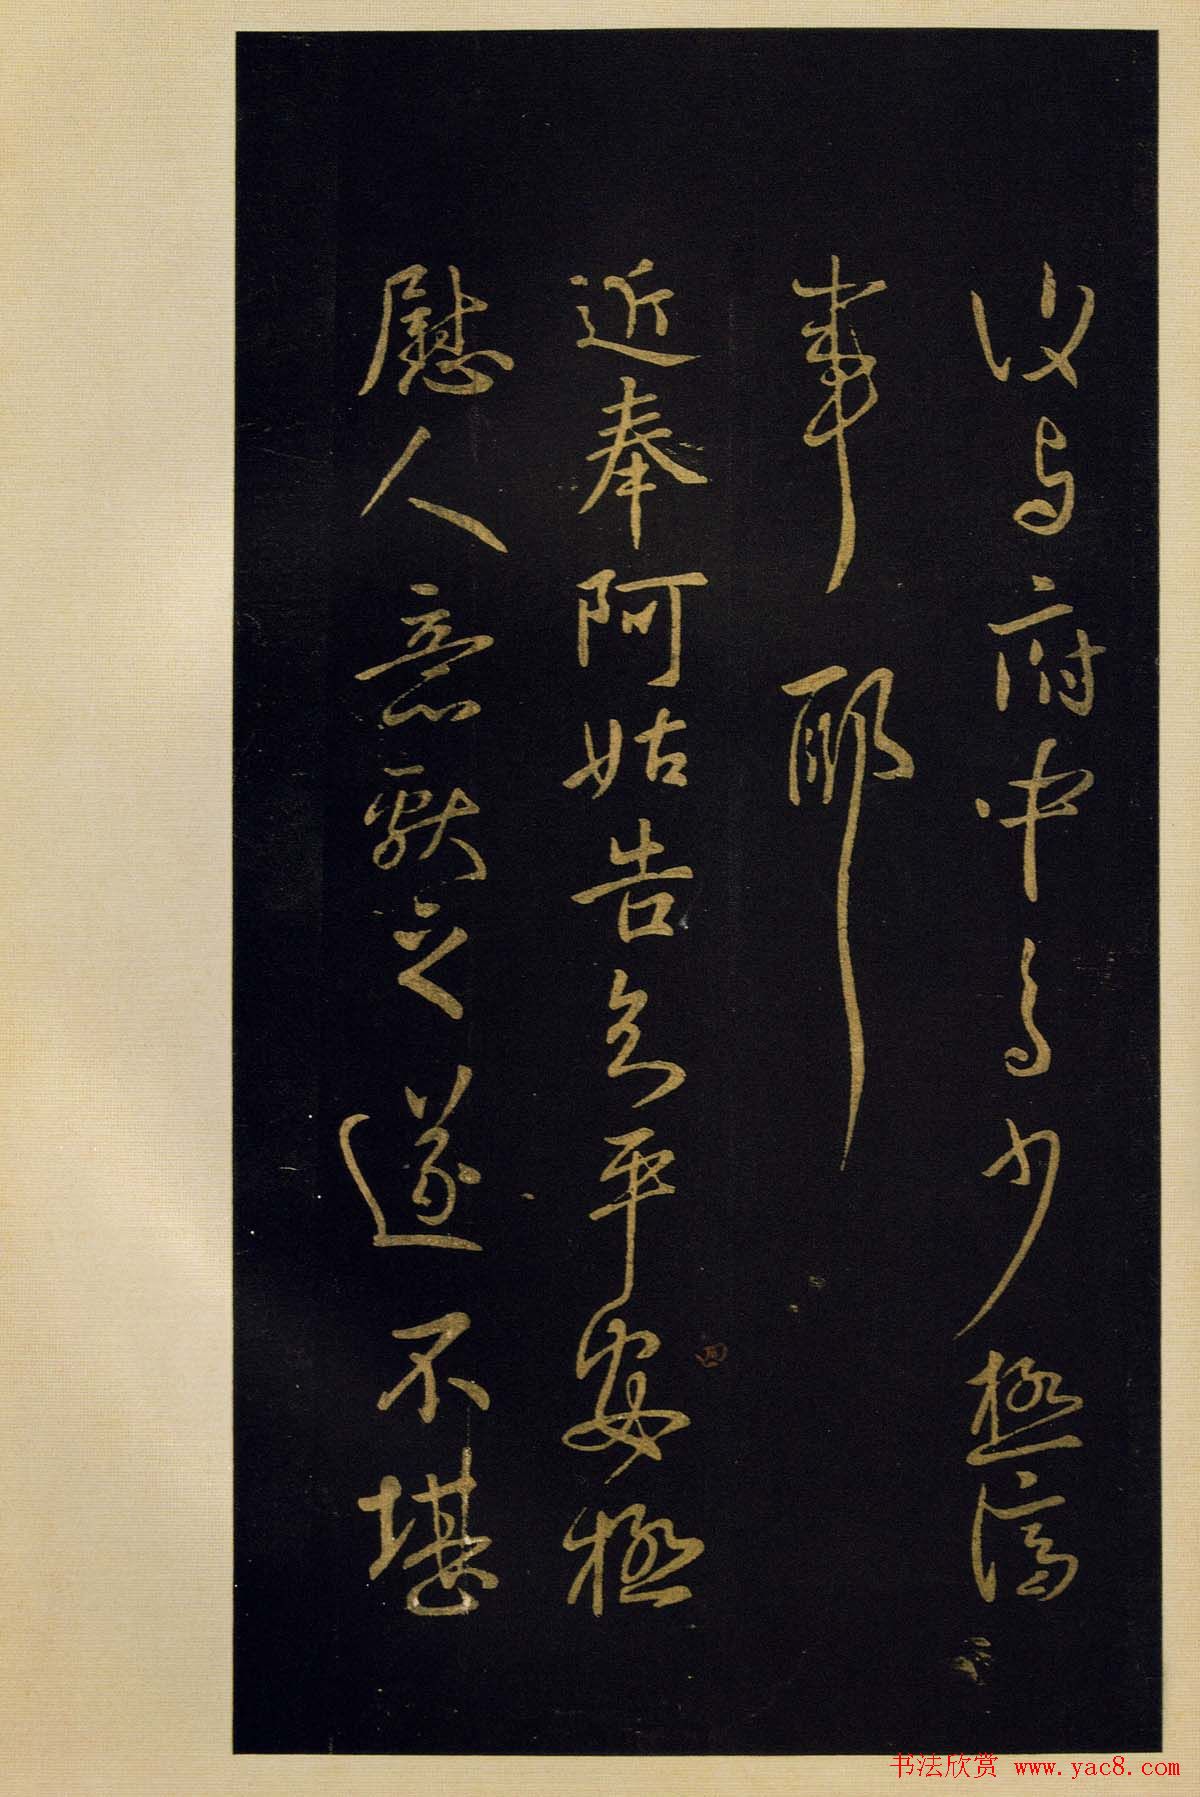 与府中少極濟
事耶
近奉阿姑告知平安極
慰人意獻之遂不堪
书法欣赏 www.yac8.com